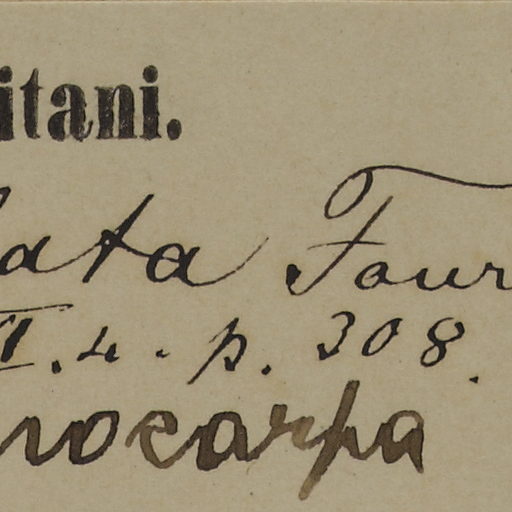 itani.
lata Four
II. 4. p. 308.
nocarpa